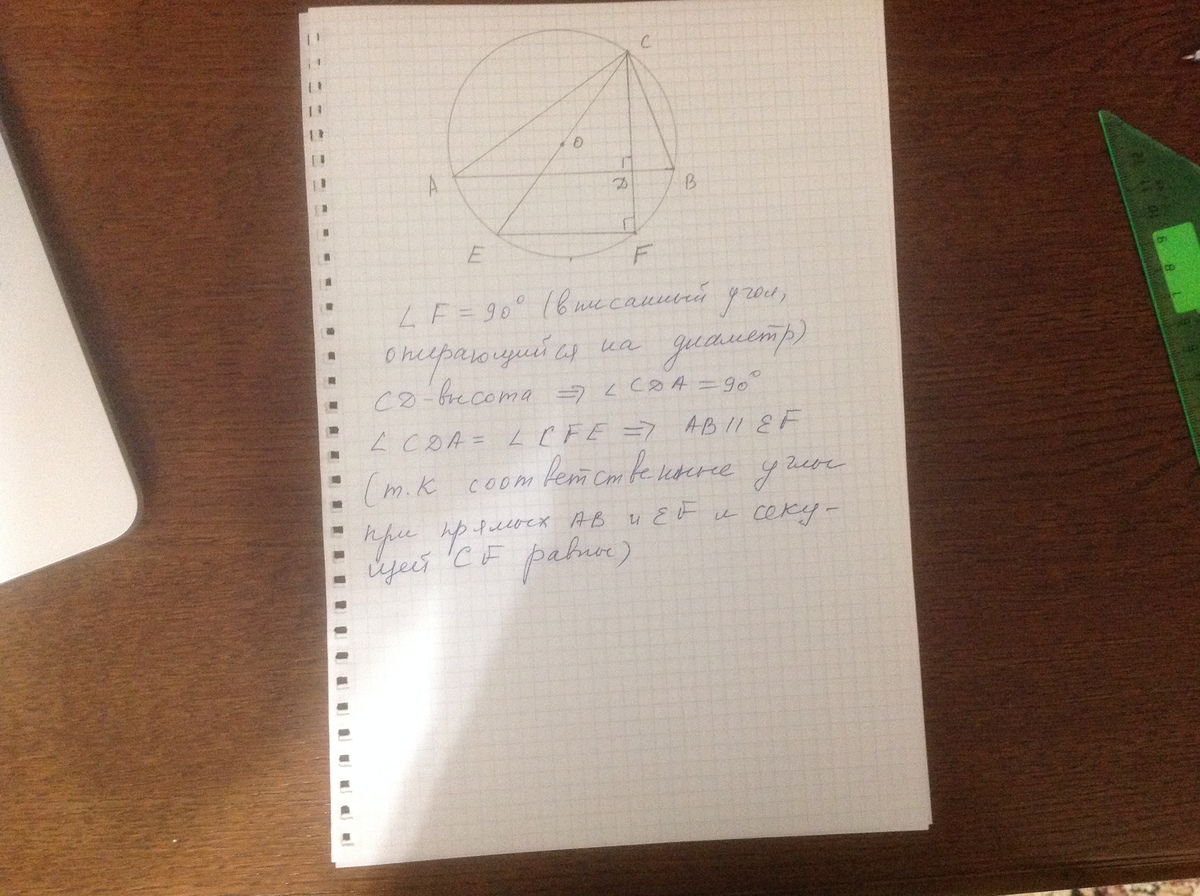 C
O
A
D
B
E
F
∠ F = 90° (вписанный угол,
опирающийся на диаметр)
CD-высота ⇒ ∠ CDA = 90°
∠ CDA = ∠ CFE ⇒ AB || EF
(т.к соответственные углы
при прямых AB и EF и секу-
щей CF равны)